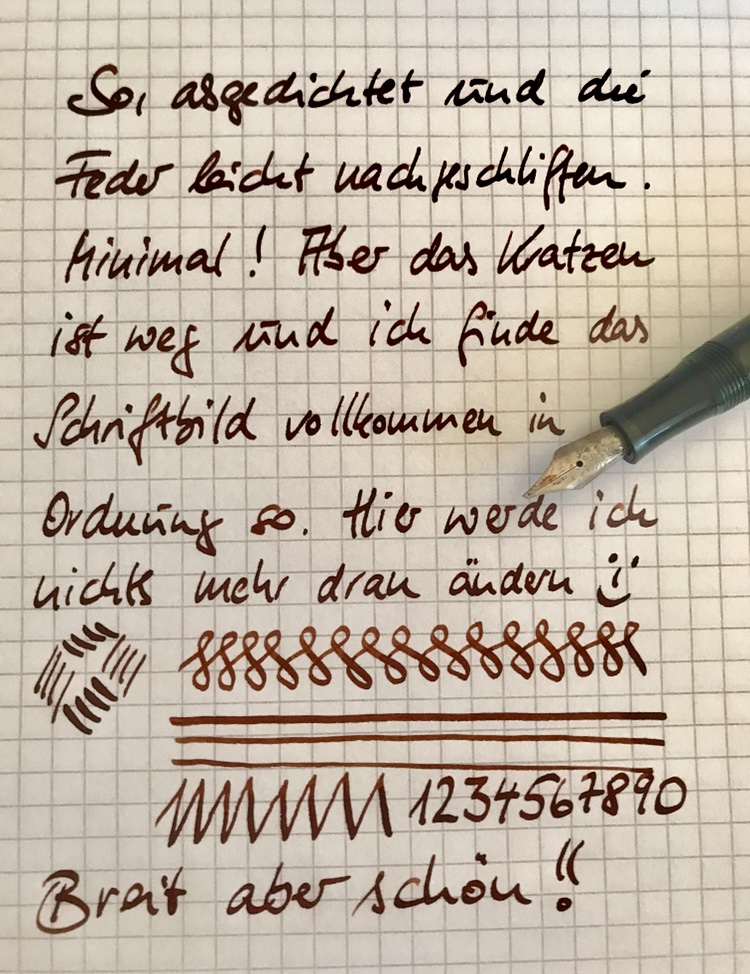 So, abgedichtet und die
Feder leicht nachgeschliffen.
Minimal! Aber das Kratzen
ist weg und ich finde das
Schriftbild vollkommen in
Ordnung so. Hier werde ich
nichts mehr dran ändern :)
1234567890
Breit aber schön!!